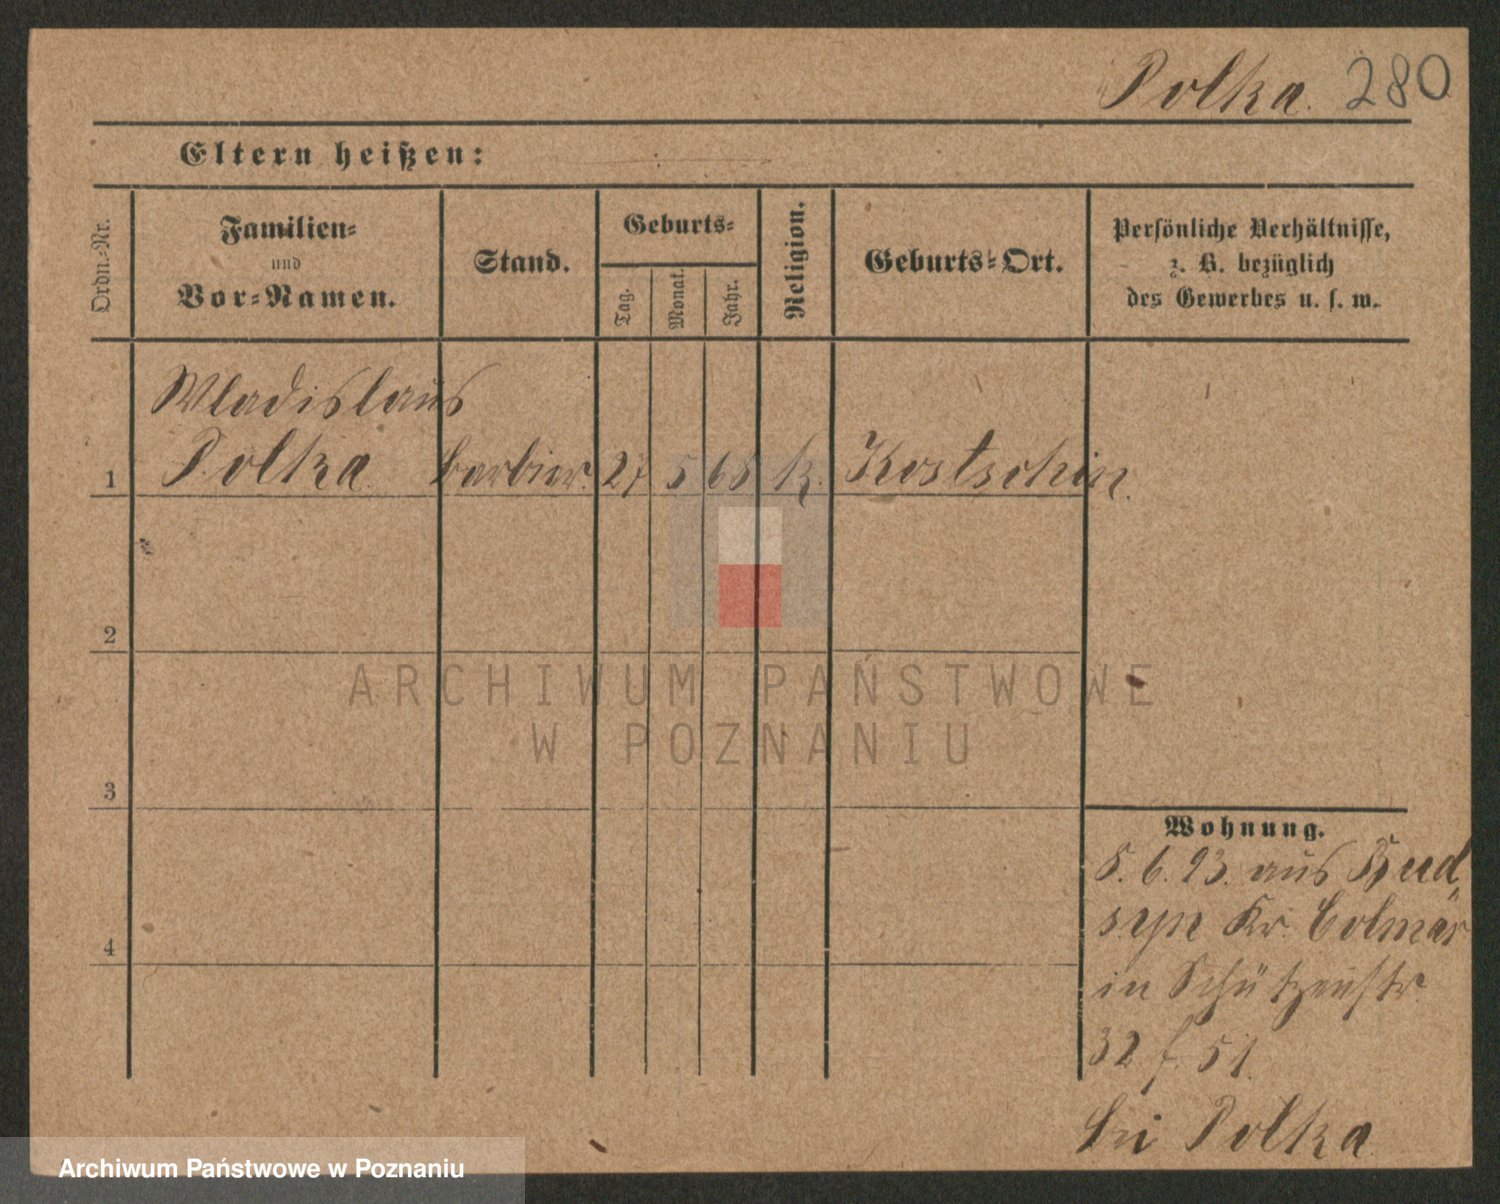 Polka. 280
Eltern heißen:
Ordn.-Nr.
Familien-
und
Vor-Namen.
Stand.
Geburts-
Tag.
Monat.
Jahr.
Religion.
Geburts-Ort.
Persönliche Verhältnisse,
z. B. bezüglich
des Gewerbes u. s. w.
Wladislaus
1 Polka Barbier. 27 5 68 k. Kostschin.
2
3
4
Wohnung.
5. 6. 93. aus Bud-
syn Kr. Colmar
in Schützenstr
32 f. 51.
bei Polka
ARCHIWUM PAŃSTWOWE
W POZNANIU
Archiwum Państwowe w Poznaniu